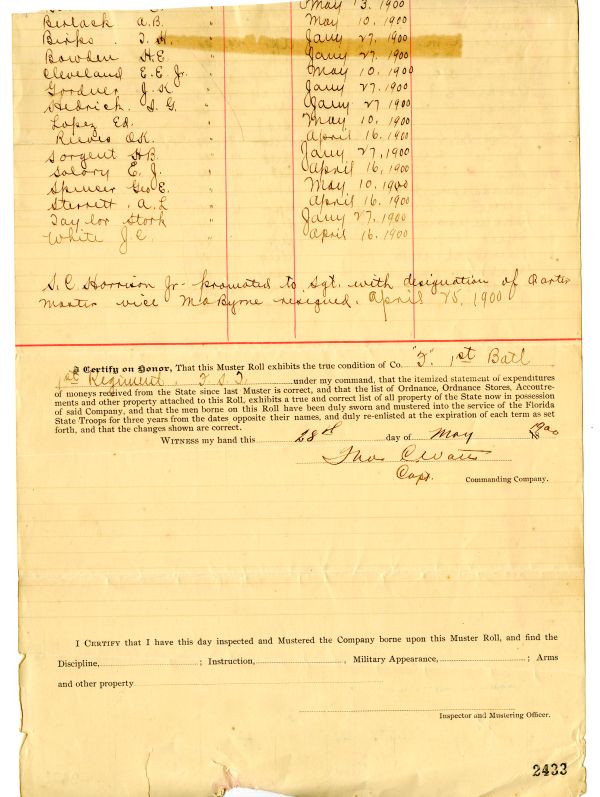 May 13, 1900
Berlack A.B. " May 10, 1900
Birks I. H. " Jany 27, 1900
Bowden H.E. " Jany 27, 1900
Cleveland E.E. Jr. " May 10, 1900
Gardner J.K. " Jany 27, 1900
Hedrick I.G. " Jany 27 1900
Lopez Ed. " May 10, 1900
Reeves O.K. " April 16, 1900
Sargent H.B. " Jany 27, 1900
Solary E. J. " April 16, 1900
Spencer Geo E. " May 10, 1900
Sterrett. A.L " April 16. 1900
Taylor Stork " Jany 27, 1900
White J.C. " April 16. 1900
S. C. Harrison Jr. promoted to Sgt. with designation of Quarter
Master vice M A Byrne resigned. April 25, 1900
I Certify on Honor, That this Muster Roll exhibits the true condition of Co. "F" 1st Batl
1st Regiment. F S T. under my command, that the itemized statement of expenditures
of moneys received from the State since last Muster is correct, and that the list of Ordnance, Ordnance Stores, Accoutre-
ments and other property attached to this Roll, exhibits a true and correct list of all property of the State now in possession
of said Company, and that the men borne on this Roll have been duly sworn and mustered into the service of the Florida
State Troops for three years from the dates opposite their names, and duly re-enlisted at the expiration of each term as set
forth, and that the changes shown are correct.
Witness my hand this 28th day of May 1900
Thos C Watts
Capt. Commanding Company.
I Certify that I have this day inspected and Mustered the Company borne upon this Muster Roll, and find the
Discipline, ; Instruction, , Military Appearance, ; Arms
and other property
Inspector and Mustering Officer.
2433